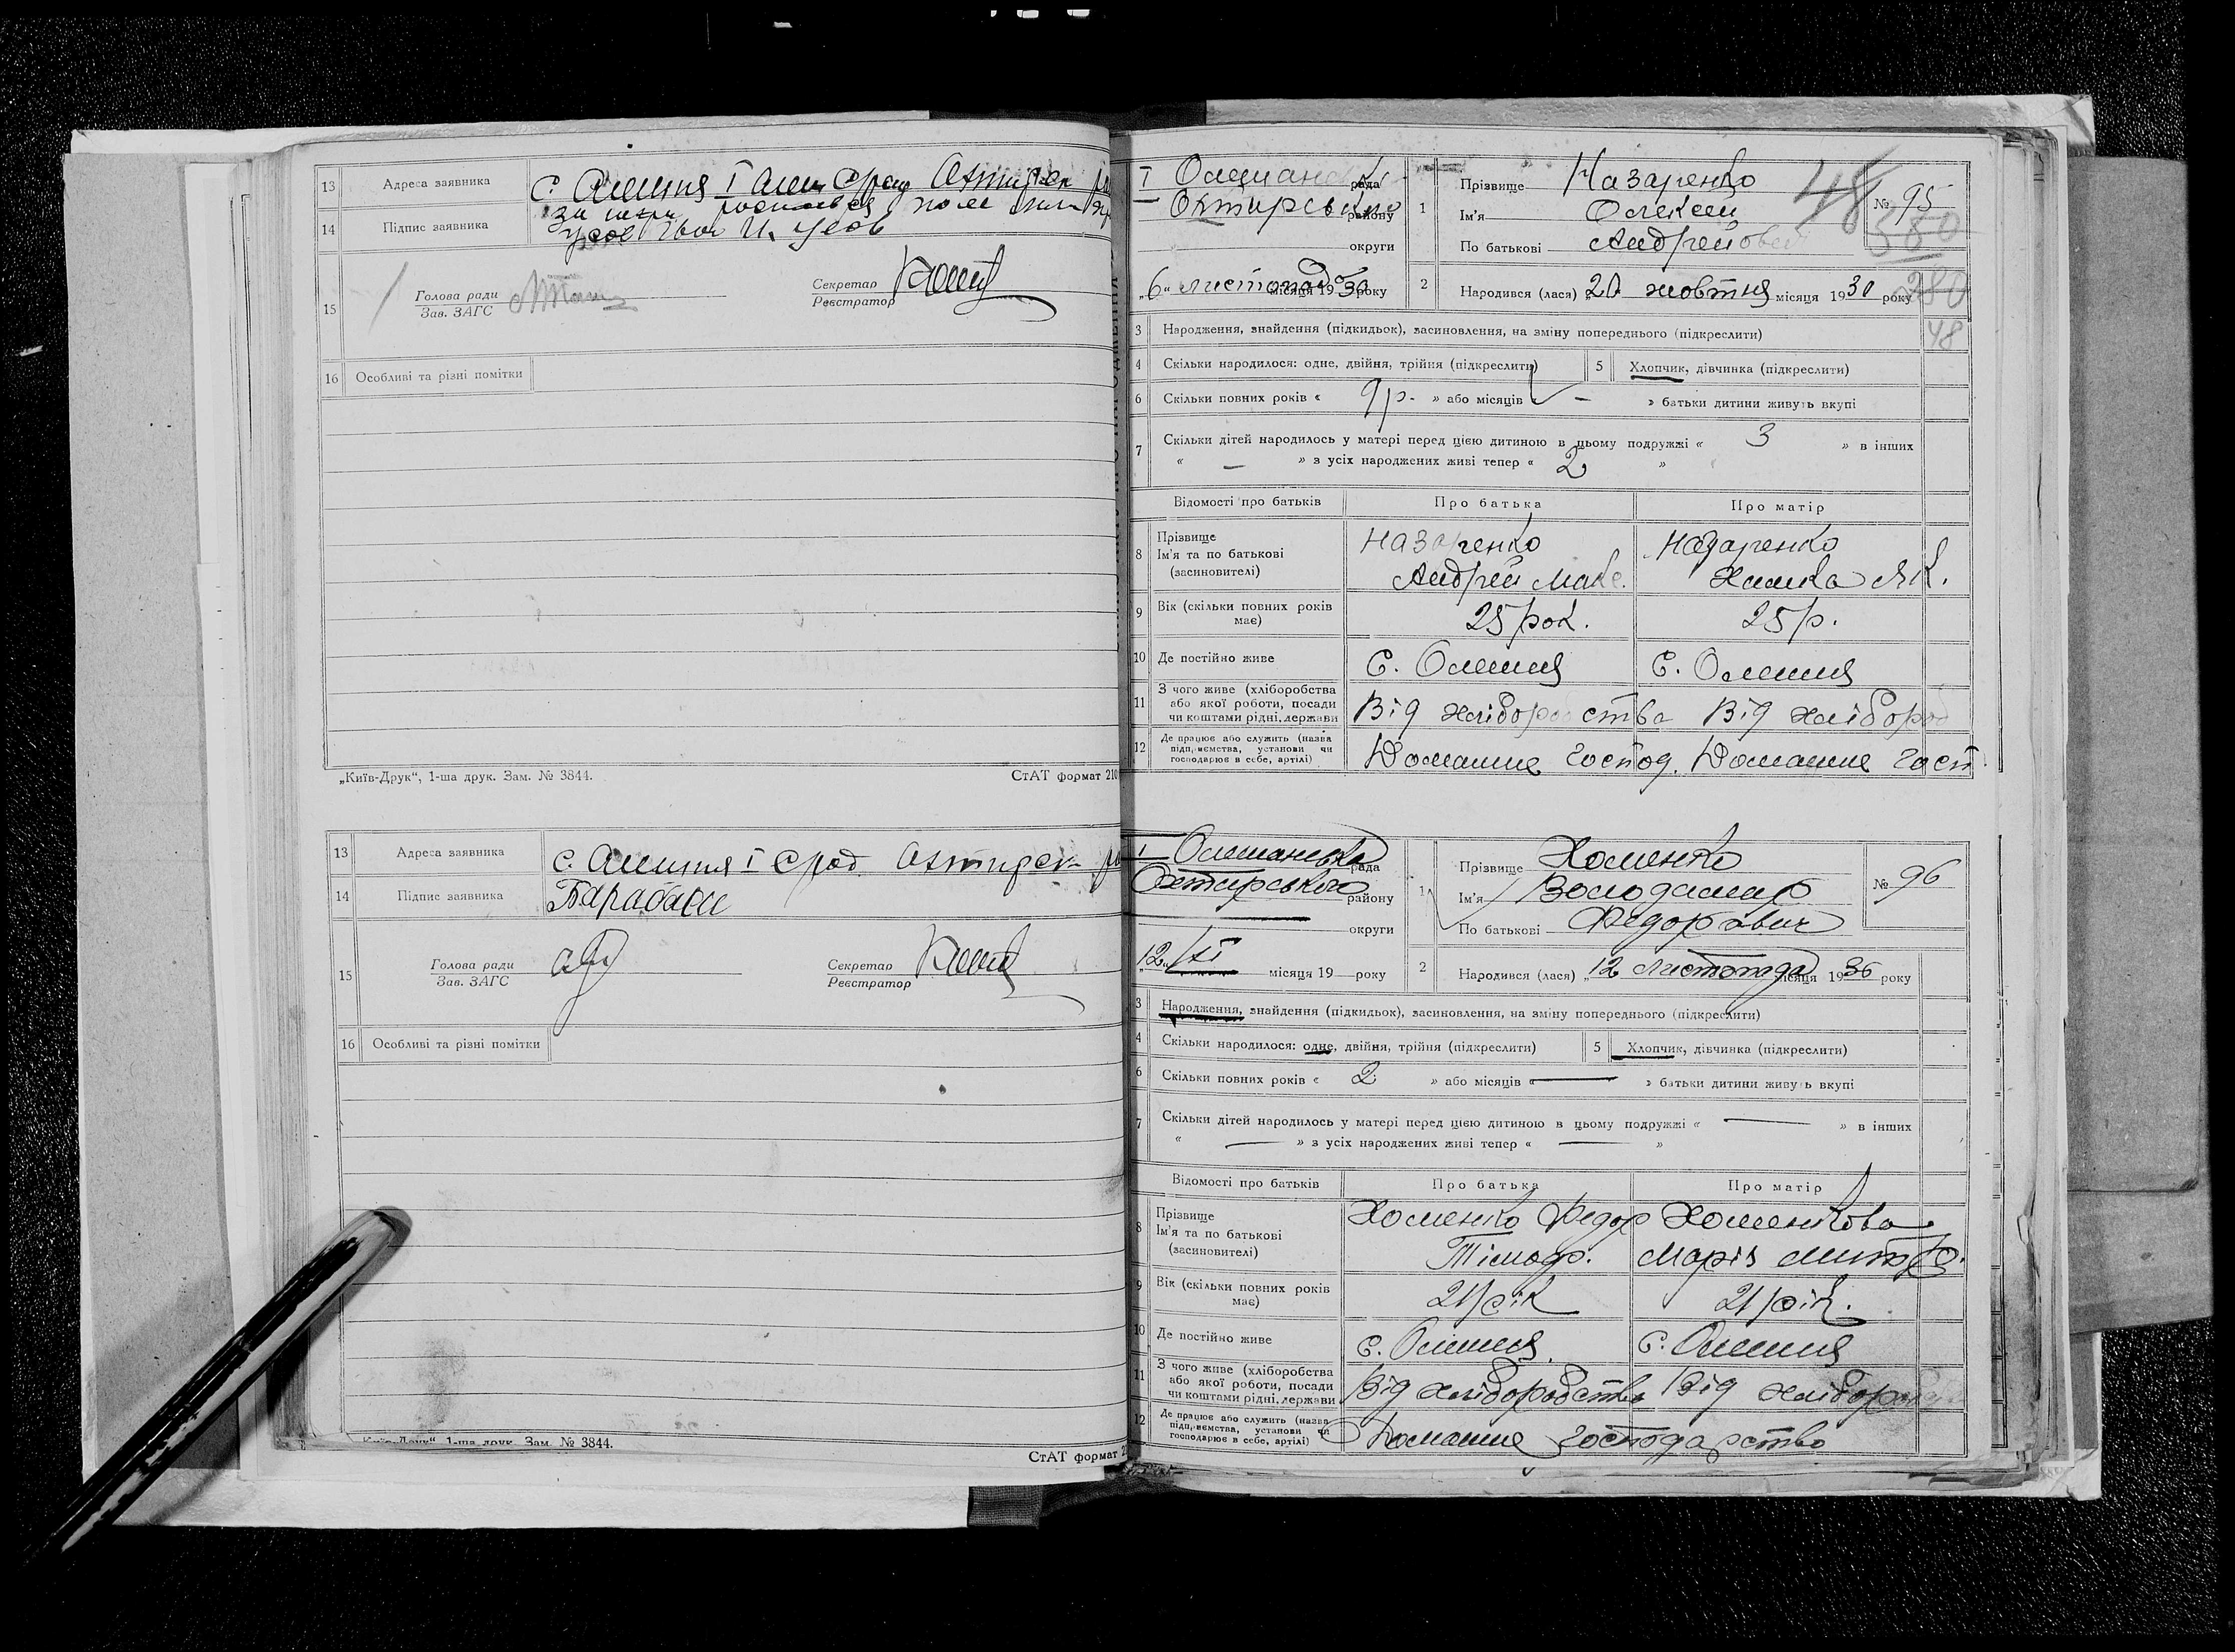 13 Адреса заявника с. Алешня І
14 Підпис заявника
15 Голова ради
Зав. ЗАГС
Секретар
Реєстратор
16 Особливі та різні помітки
„Київ-Друк“, 1-ша друк. Зам. № 3844.
СтАТ формат 210
13 Адреса заявника с. Алешня І с/рад. Ахтирск
14 Підпис заявника Барабаш
15 Голова ради
Зав. ЗАГС
Секретар
Реєстратор
16 Особливі та різні помітки
„Київ-Друк“, 1-ша друк. Зам. № 3844.
СтАТ формат 2
І рада
району
округи
„6“ листопада місяця 1930 року
1 Прізвище Назаренко
Ім'я Олексей
По батькові Андрейович
48
№ 95
380
2 Народився (лася) „20 жовтня місяця 1930 року
280
3 Народження, знайдення (підкидьок), засиновлення, на зміну попереднього (підкреслити)
48
4 Скільки народилося: одне, двійня, трійня (підкреслити)
5 Хлопчик, дівчинка (підкреслити)
6 Скільки повних років « 9 р. » або місяців « — » батьки дитини живуть вкупі
7 Скільки дітей народилось у матері перед цією дитиною в цьому подружжі « 3 » в інших
« — » з усіх народжених живі тепер « 2 »
Відомості про батьків Про батька Про матір
8 Прізвище
Ім'я та по батькові
(засиновителі)
Назаренко
Андрей Макс.
Назаренко
Як.
9 Вік (скільки повних років
має)
25 рок.
25 р.
10 Де постійно живе с. Олешня с. Олешня
11 З чого живе (хліборобства
або якої роботи, посади
чи коштами рідні, держави
Від хліборобства Від хлібороб
12 Де працює або служить (назва
підприємства, установи чи
господарює в себе, артілі)
Домашнє господ. Домашнє госп
І Олешанська рада
Охтирського району
округи
„12“ XI місяця 19 року
1 Прізвище Хоменко
Ім'я Володимир
По батькові Федорович
№ 96
2 Народився (лася) „12 листопада місяця 1936 року
3 Народження, знайдення (підкидьок), засиновлення, на зміну попереднього (підкреслити)
4 Скільки народилося: одне, двійня, трійня (підкреслити)
5 Хлопчик, дівчинка (підкреслити)
6 Скільки повних років « 2 » або місяців « — » батьки дитини живуть вкупі
7 Скільки дітей народилось у матері перед цією дитиною в цьому подружжі « — » в інших
« — » з усіх народжених живі тепер « — »
Відомості про батьків Про батька Про матір
8 Прізвище
Ім'я та по батькові
(засиновителі)
Хоменко Федор
Тімоф.
Хоменкова
Марія Митр.
9 Вік (скільки повних років
має)
21 рік
21 рік.
10 Де постійно живе с. Олешня с. Олешня
11 З чого живе (хліборобства
або якої роботи, посади
чи коштами рідні, держави
Від хліборобства Від хлібороб
12 Де працює або служить (назва
підприємства, установи чи
господарює в себе, артілі)
Домашнє господарство